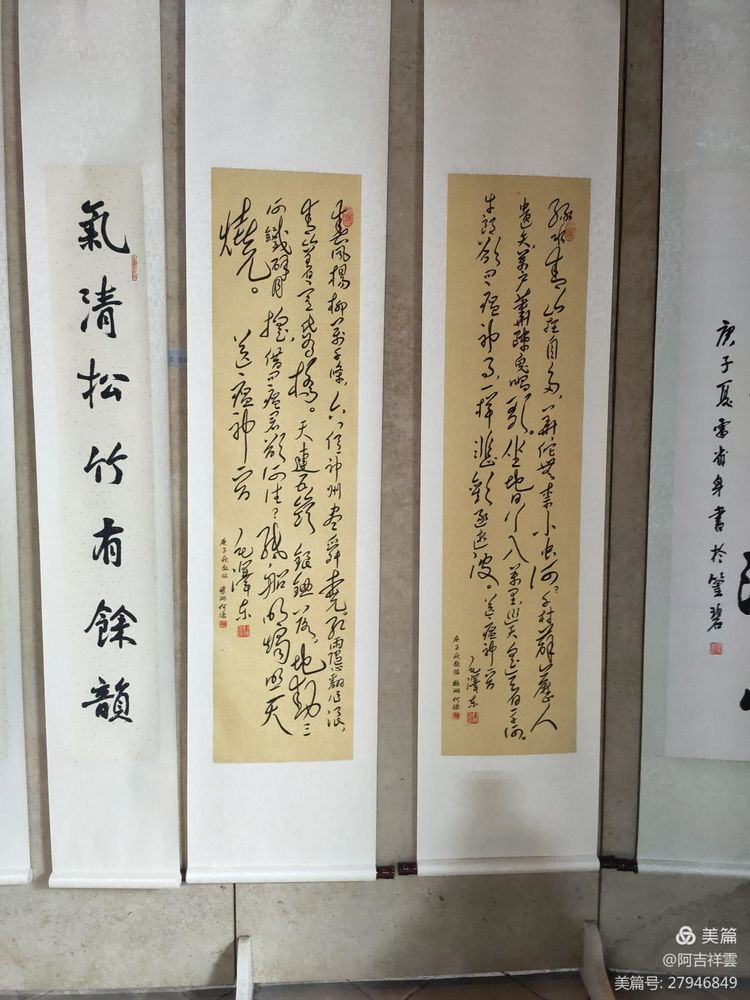 庚子夏雷省身書於篁碧
綠水青山枉自多,華佗無奈小虫何?千村薜荔人
遺矢萬户蕭疏鬼唱歌。坐地日行八萬里巡天遥看一千河。
牛郎欲問瘟神事,一樣悲歡逐逝波。送瘟神首
毛澤東
庚子秋敬臨
春風楊柳萬千條,六億神州盡舜堯。紅雨隨心翻作浪,
青山着意化為橋。天連五嶺銀鋤落,地動三
河鐵臂摇。借問瘟君欲何往?紙船明燭照天
燒。
送瘟神首
毛澤東
庚子秋敬臨
氣清松竹有餘韻
美篇
@阿吉祥雲
美篇号: 27946849